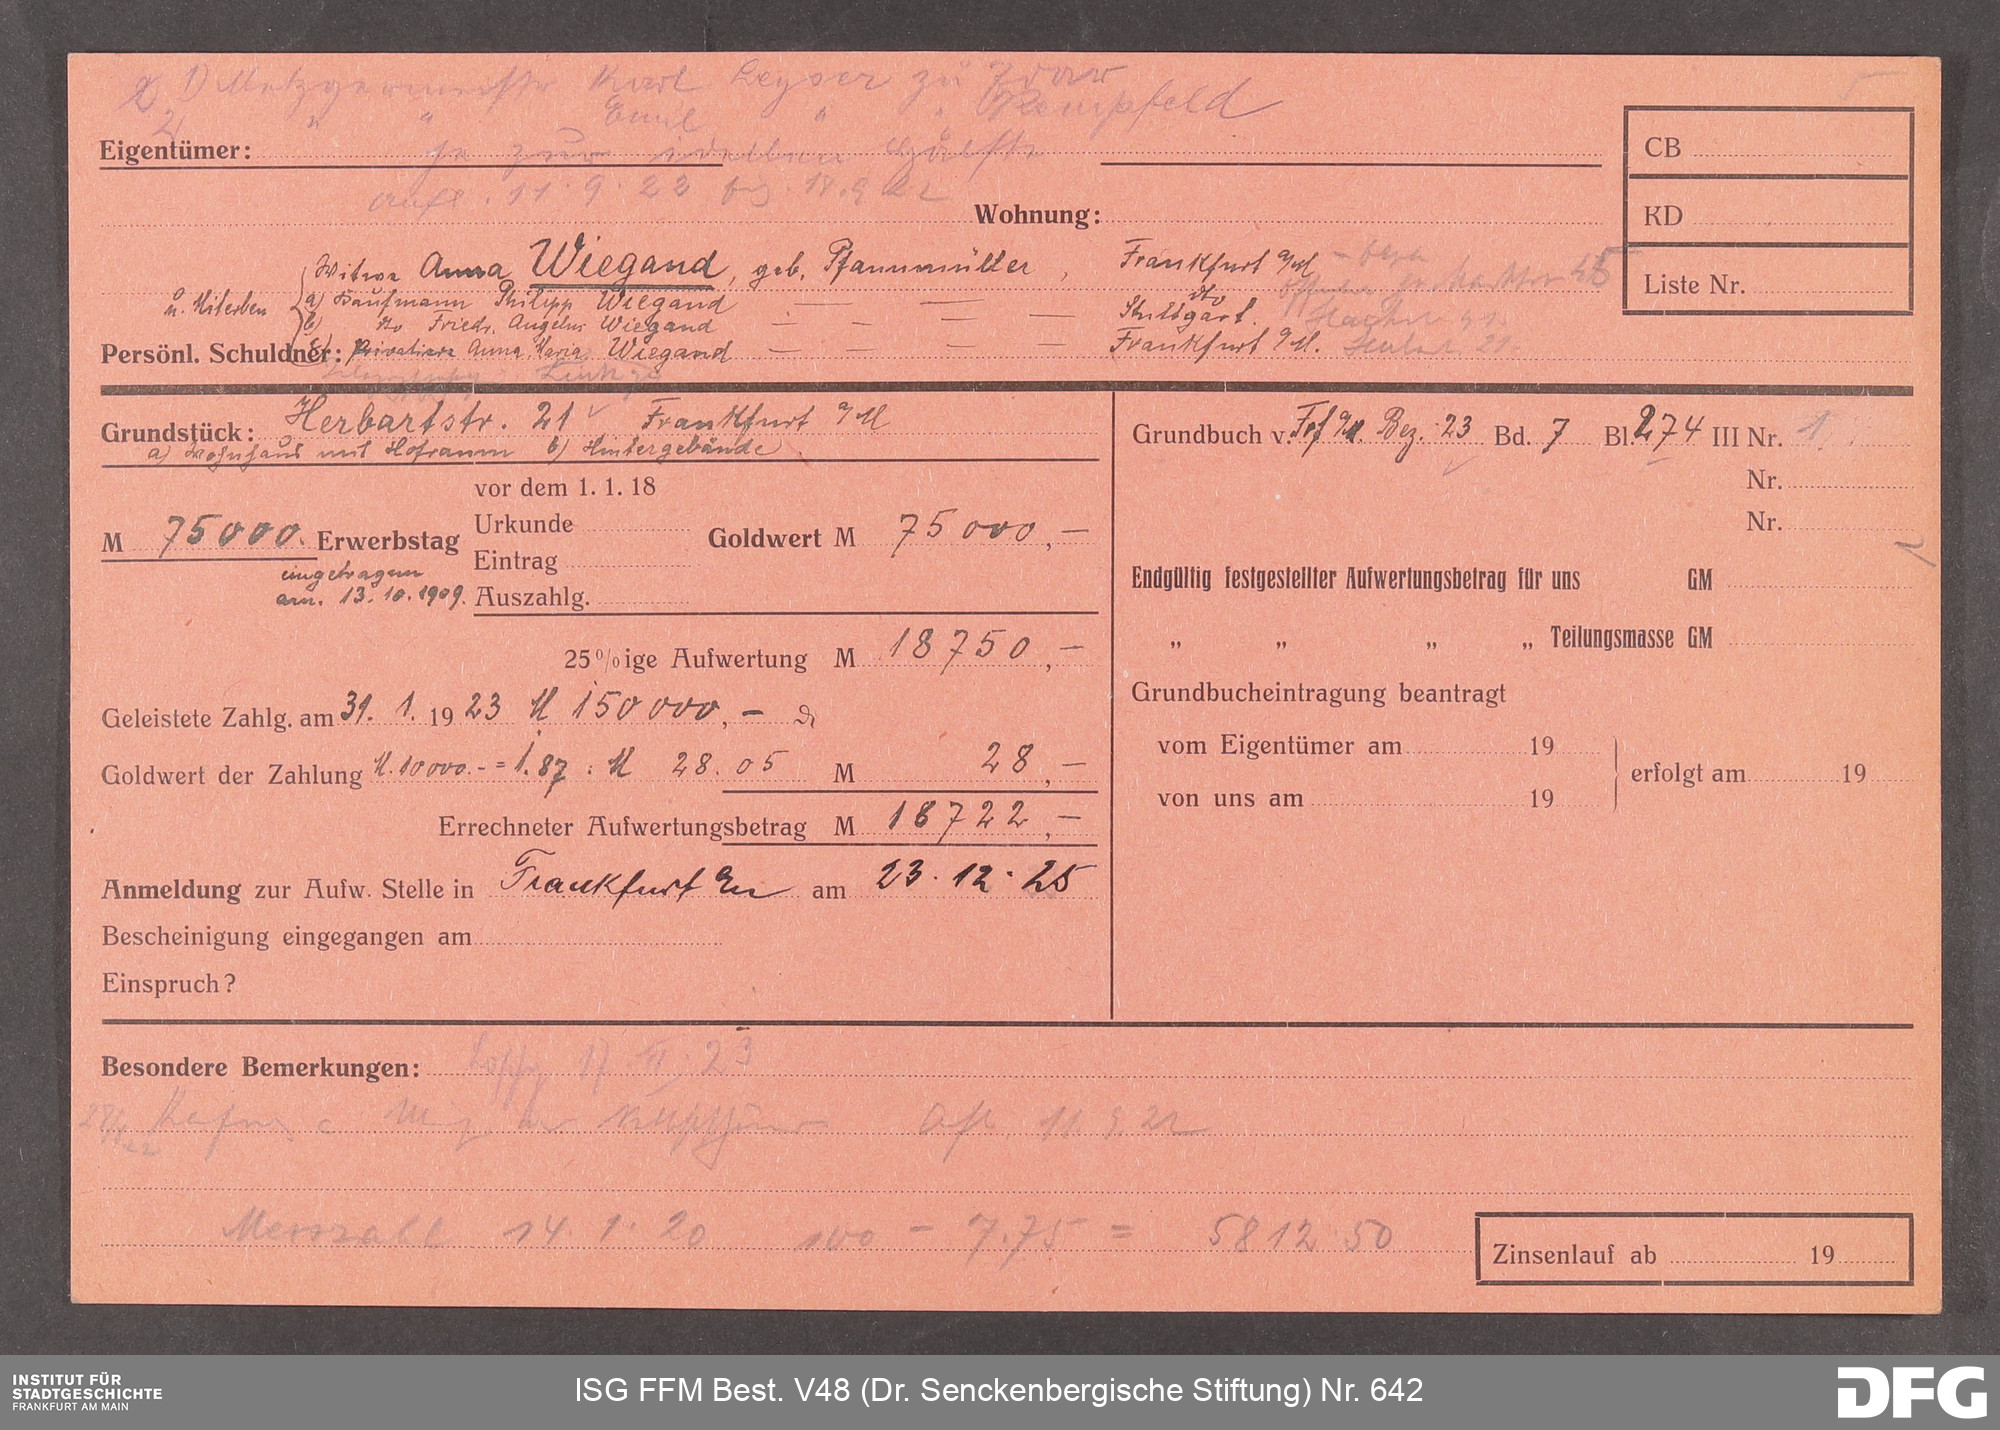 1) Metzgermeister Karl Leyser zu Idar
2) " " Emil " " Kempfeld
Eigentümer: je zur ideellen Hälfte
Aufl. 11.9.22 18.9.22
Wohnung:
Witwe Anna Wiegand, geb. Pfannmüller, Frankfurt a/M
u. Miterben a) Kaufmann Philipp Wiegand — — — dto
b) dto Friedr. Angelus Wiegand — — — — Stuttgart.
Persönl. Schuldner: c) Privatiere Anna Maria Wiegand — — — — Frankfurt a/M.
CB
KD
Liste Nr.
Grundstück: Herbartstr. 21 Frankfurt a/M
a) Wohnhaus mit Hofraum b) Hintergebände
M 75000. Erwerbstag
eingetragen
am. 13.10.1909.
vor dem 1. 1. 18
Urkunde
Eintrag
Auszahlg.
Goldwert M 75000,—
25%ige Aufwertung M 18750,—
Geleistete Zahlg. am 31. 1. 1923 M 150000,—
Goldwert der Zahlung M. 10000.- = 1.87 : M 28.05 M 28,—
Errechneter Aufwertungsbetrag M 18722,—
Anmeldung zur Aufw. Stelle in Frankfurt am 23.12.25
Bescheinigung eingegangen am
Einspruch?
Grundbuch v. Frf a/M Bez. 23 Bd. 7 Bl. 274 III Nr. 1
Nr.
Nr.
Endgültig festgestellter Aufwertungsbetrag für uns GM
„ „ „ „ Teilungsmasse GM
Grundbucheintragung beantragt
vom Eigentümer am 19
von uns am 19
erfolgt am 19
Besondere Bemerkungen: 23
11.9.22
Messzahl 14.1.20 100 - 7.75 = 5812.50
Zinsenlauf ab 19
INSTITUT FÜR
STADTGESCHICHTE
FRANKFURT AM MAIN
ISG FFM Best. V48 (Dr. Senckenbergische Stiftung) Nr. 642
DFG